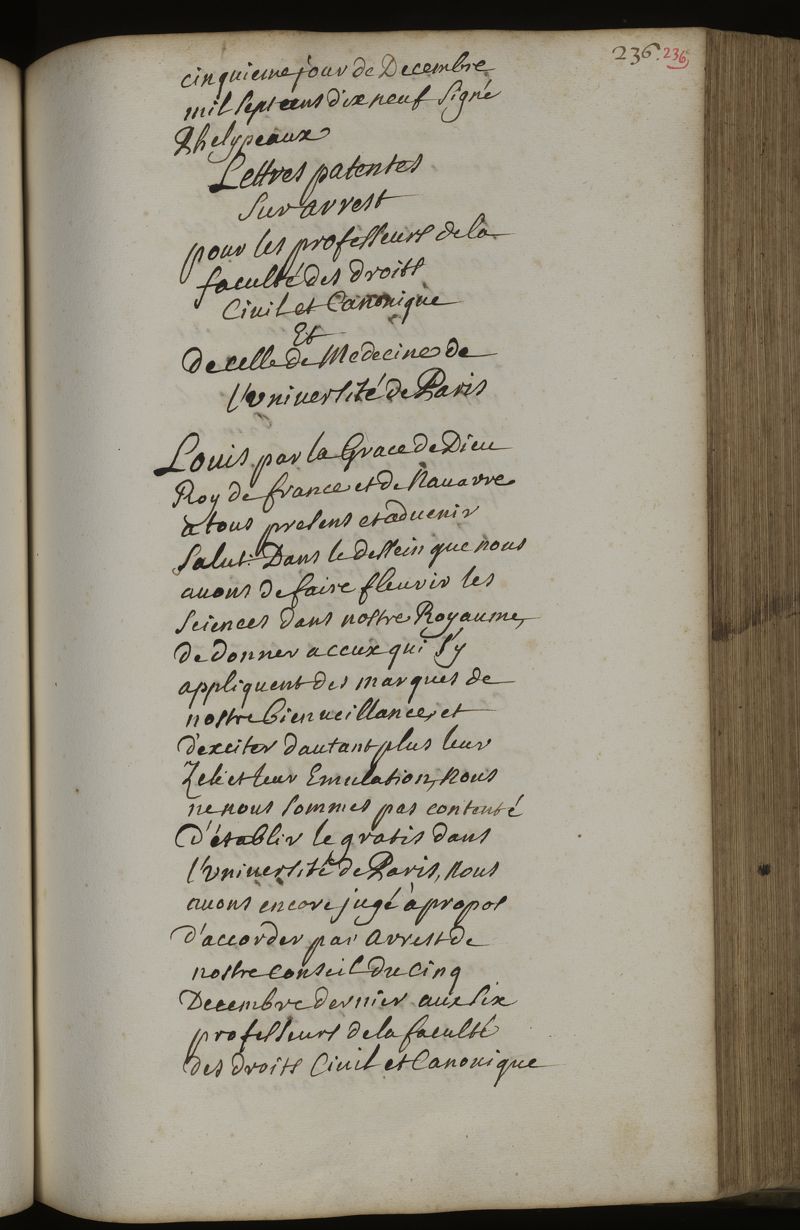 236. 236
cinquieme jour de Decembre
mil sept cens dix neuf Signé
Phelypeaux
Lettres patentes
Sur arrest
pour les professeurs de la
faculté des droits
Civil et Canonique
Et
De celle de Medecine de
l'vniuersité de Paris
Louis par la Grace de Dieu
Roy de france et de Nauarre
a tous presens et aduenir
Salut. Dans le dessein que nous
auons de faire fleurir les
Sciences dans nostre Royaume,
de donner a ceux qui s'y
appliquent des marques de
nostre bienueillance, et
d'exciter dautant plus leur
Zele et leur Emulation, Nous
ne nous sommes pas contenté
D'établir le gratis dans
l'vniuersité de Paris, Nous
auons encore jugé à propos
D'accorder par arrest de
nostre conseil du cinq
Decembre dernier aux six
professeurs de la faculté
des droits Ciuil et Canonique